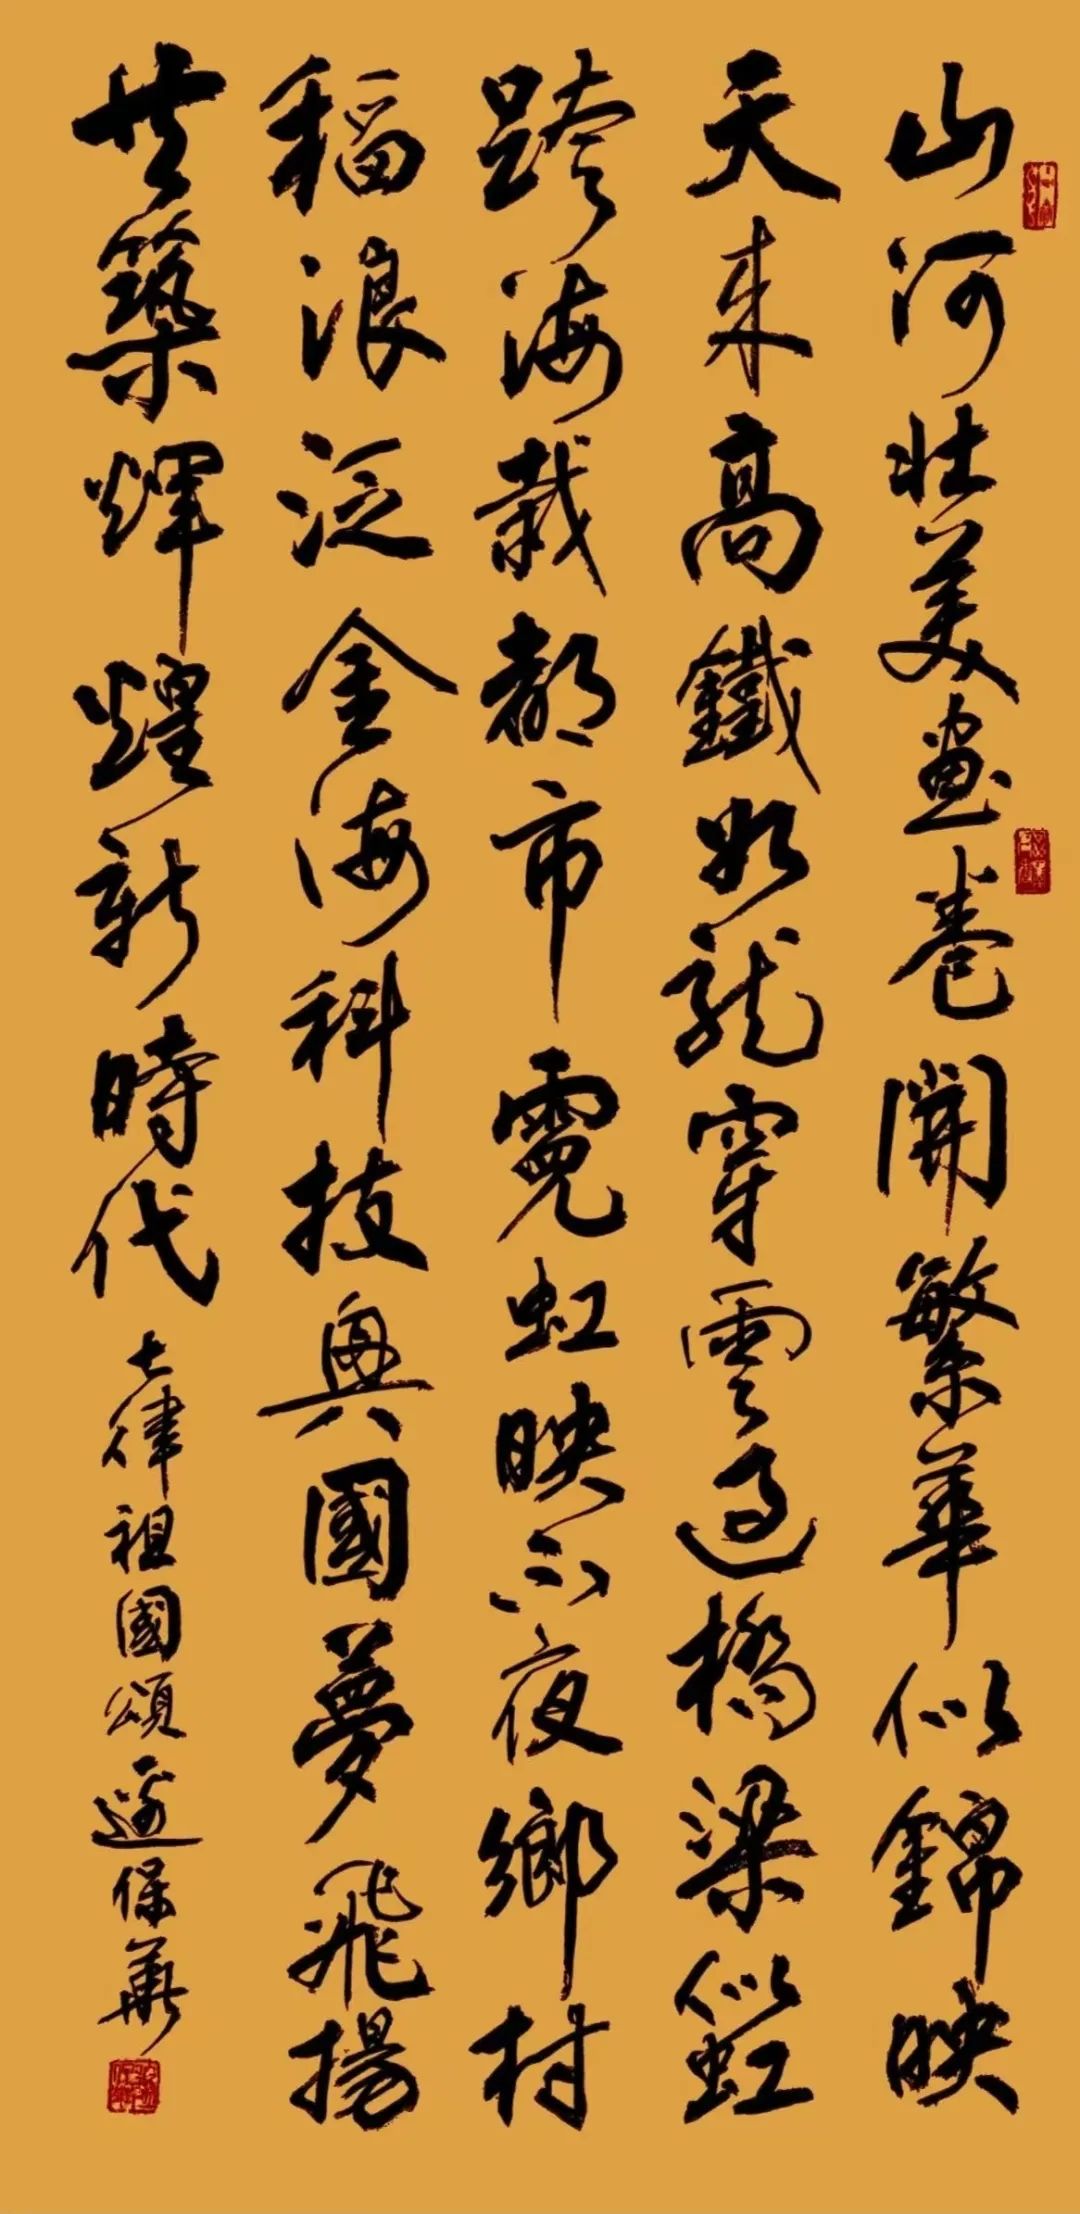 山河壯美畫卷開繁華似錦映
天來高鐵如龍穿雲過橋梁似虹
跨海栽都市霓虹映不夜鄉村
稻浪泛金海科技興國夢飛揚
共築輝煌新時代 七律祖國頌 邊保華